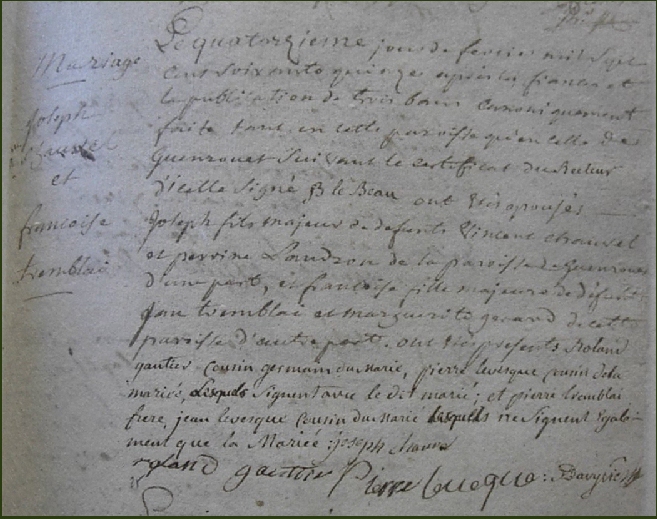 Mariage
Joseph
chauvel
et
francoise
tremblai
Le quatorzieme jour de fevrier mil sept
cent soixante quinze après les fiances et
la publication de trois bans canoniquement
faite tant en cette paroisse qu'en celle de
Guenrouet suivant le certificat du Recteur
d'icelle signé le Beau ont été epousés
joseph fils majeur de defunts Vincent chauvel
et perrine Landron de la paroisse de Guenrouet
d'une part, et francoise fille majeure de défunt
jan tremblai et marguerite gerard de cette
paroisse d'autre part. ont été presents Roland
gautier cousin germain du marie, pierre levesque cousin de la
mariée, lesquels signent avec le dit marié; et pierre tremblai
frere, jean levesque cousin du marié lesquels ne signent egale-
ment que la Mariée : joseph chauvel
roland gautier Pierre leveque :